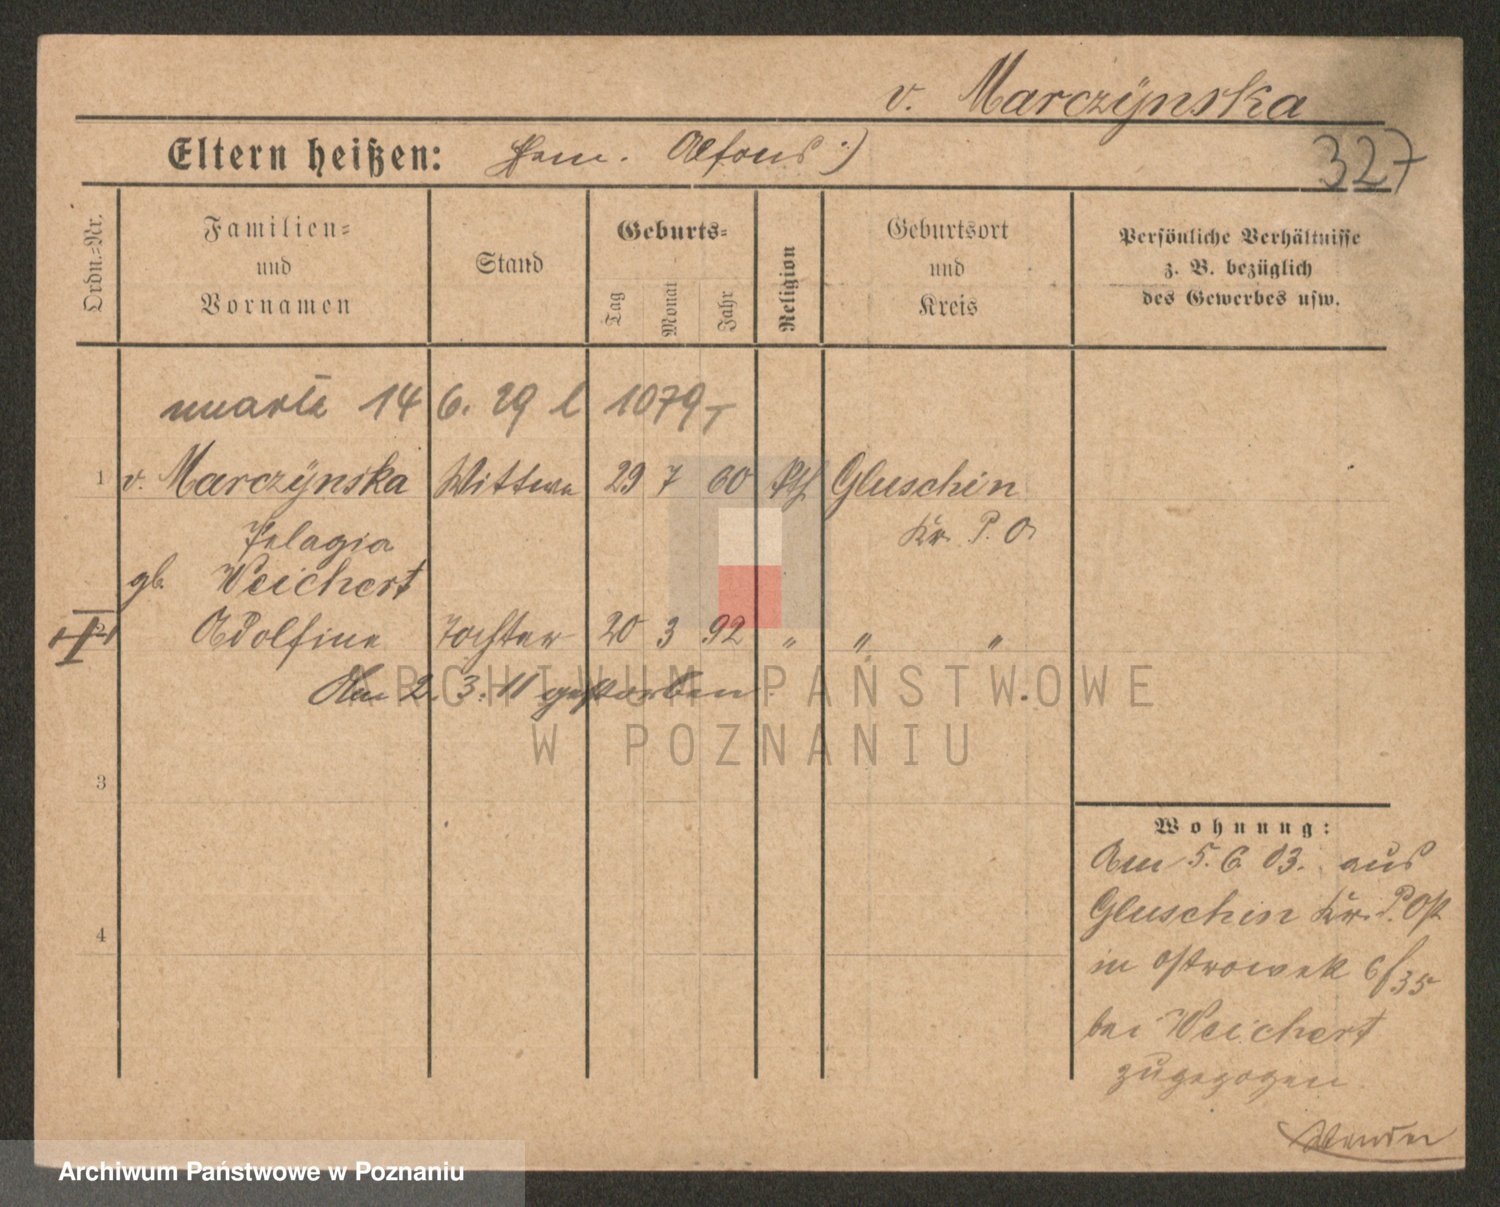 v. Marczÿnska
Eltern heißen: Alfons :)
327
Ordn.-Nr.
Familien- und Vornamen
Stand
Geburts-
Tag
Monat
Jahr
Religion
Geburtsort und Kreis
Persönliche Verhältnisse
z. B. bezüglich
des Gewerbes usw.
14 6. 29 1079
1 v. Marczÿnska Wittwe 29 7 60 kth Gluschin
Pelagia Kr. P. O.
gb. Weichert
Adolfine Tochter 20 3 92 " " "
Am 2. 3. 11 gestorben.
3
4
Wohnung:
Am 5. 6. 03. aus
Gluschin Kr. P. Ost
in Ostrowek 6/35
bei Weichert
zugezogen
Wenden
ARCHIWUM PAŃSTWOWE
W POZNANIU
Archiwum Państwowe w Poznaniu